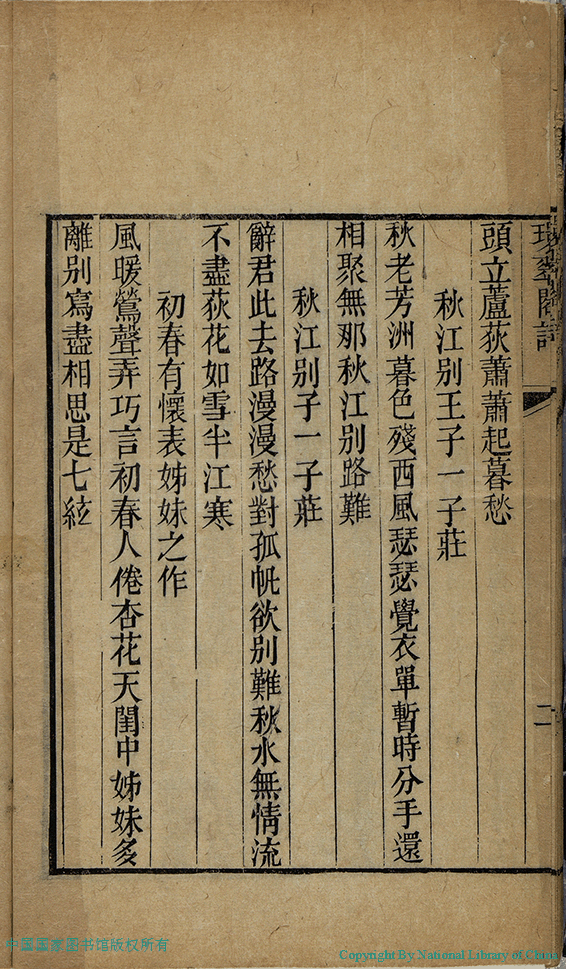 二
頭立蘆荻蕭蕭起暮愁
秋江别王子一子莊
秋老芳洲暮色殘西風瑟瑟覺衣單暫時分手還
相聚無那秋江别路難
秋江别子一子莊
辭君此去路漫漫愁對孤帆欲别難秋水無情流
不盡荻花如雪半江寒
初春有懷表姊妹之作
風暖鶯聲弄巧言初春人倦杏花天閨中姊妹多
離别寫盡相思是七絃
中国国家图书馆版权所有
Copyright By National Library of China